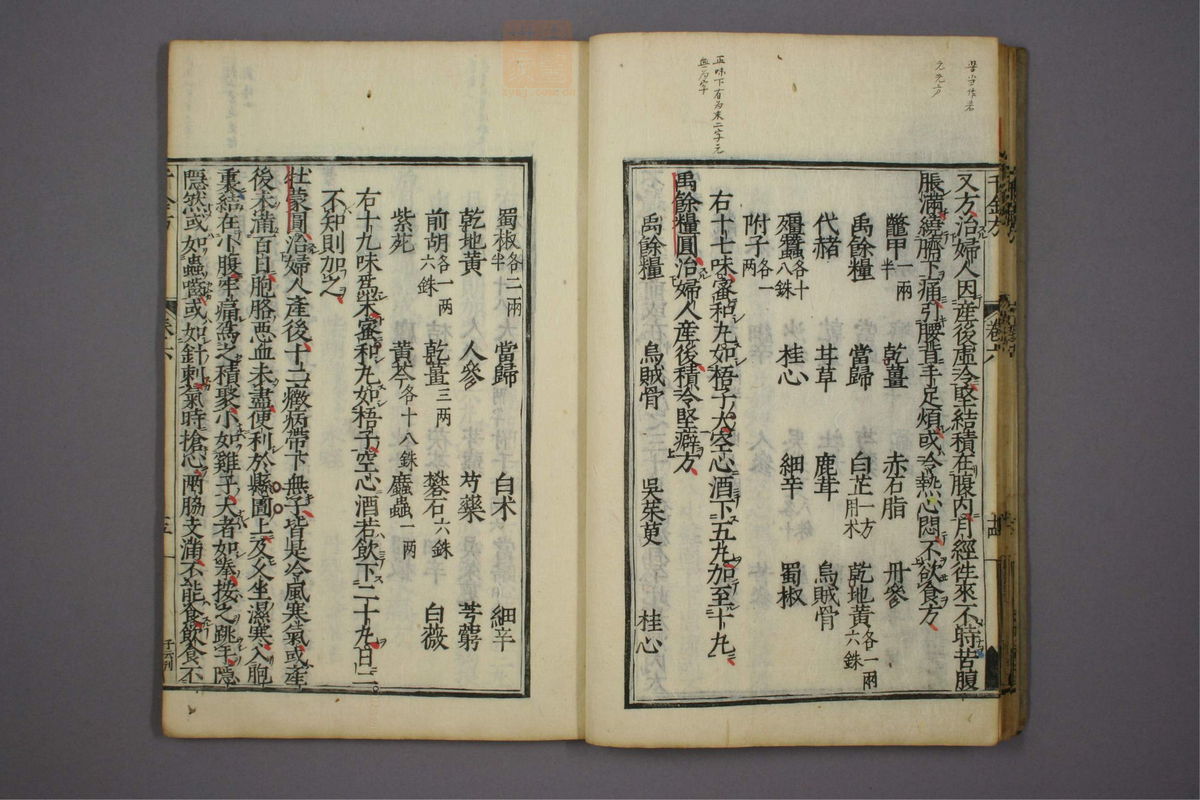 又方治婦人因產後虛冷堅結積在腹内月經徃來不時苦腹
脹滿繞臍下痛引腰背手足煩或冷熱心悶不欲食方
鼈甲一兩半 乾薑 赤石脂 丹參
禹餘糧 當歸 白芷一方用术 乾地黃各一兩六銖
代赭 甘草 鹿茸 烏賊骨
殭蠶各十八銖 桂心 細辛 蜀椒
附子各一兩
右十七味蜜和丸如梧子大空心酒下五丸加至十丸
禹餘糧圓治婦人產後積冷堅癖方
禹餘糧 烏賊骨 吳茱萸 桂心
蜀椒各二兩半 當歸 白术 細辛
乾地黃 人參 芍藥 芎藭
前胡各一兩六銖 乾薑三兩 礬石六銖 白薇
紫菀 黃芩各十八銖 䗪蟲一兩
右十九味爲末蜜和丸如梧子空心酒若飲下二十丸日二
不知則加之
牡蒙圓治婦人產後十二癥病帶下無子皆是冷風寒氣或產
後未滿百日胞胳惡血未盡便利於懸圊上及久坐濕寒入胞
裏結在小腹牢痛爲之積聚小如雞子大者如拳按之跳手隱
隱然或如蟲齧或如針刺氣時搶心兩脇支滿不能食飲食不
千金方
卷六